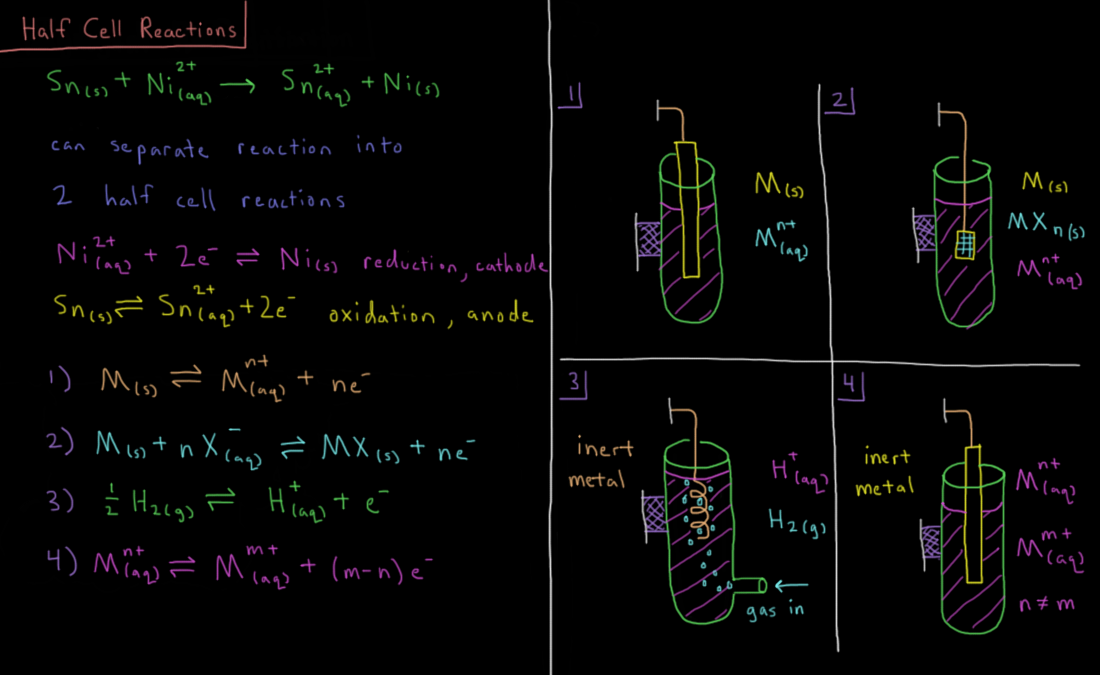 Half Cell Reactions
Sn(s) + Ni²⁺(aq) → Sn²⁺(aq) + Ni(s)
can separate reaction into
2 half cell reactions
Ni²⁺(aq) + 2e⁻ ⇌ Ni(s) reduction, cathode
Sn(s) ⇌ Sn²⁺(aq) + 2e⁻ oxidation, anode
1) M(s) ⇌ Mⁿ⁺(aq) + ne⁻
2) M(s) + n X⁻(aq) ⇌ MX(s) + ne⁻
3) ½ H₂(g) ⇌ H⁺(aq) + e⁻
4) Mⁿ⁺(aq) ⇌ Mᵐ⁺(aq) + (m-n) e⁻
1
M(s)
Mⁿ⁺(aq)
2
M(s)
MXn(s)
Mⁿ⁺(aq)
3
inert
metal
H⁺(aq)
H₂(g)
gas in
4
inert
metal
Mⁿ⁺(aq)
Mᵐ⁺(aq)
n ≠ m